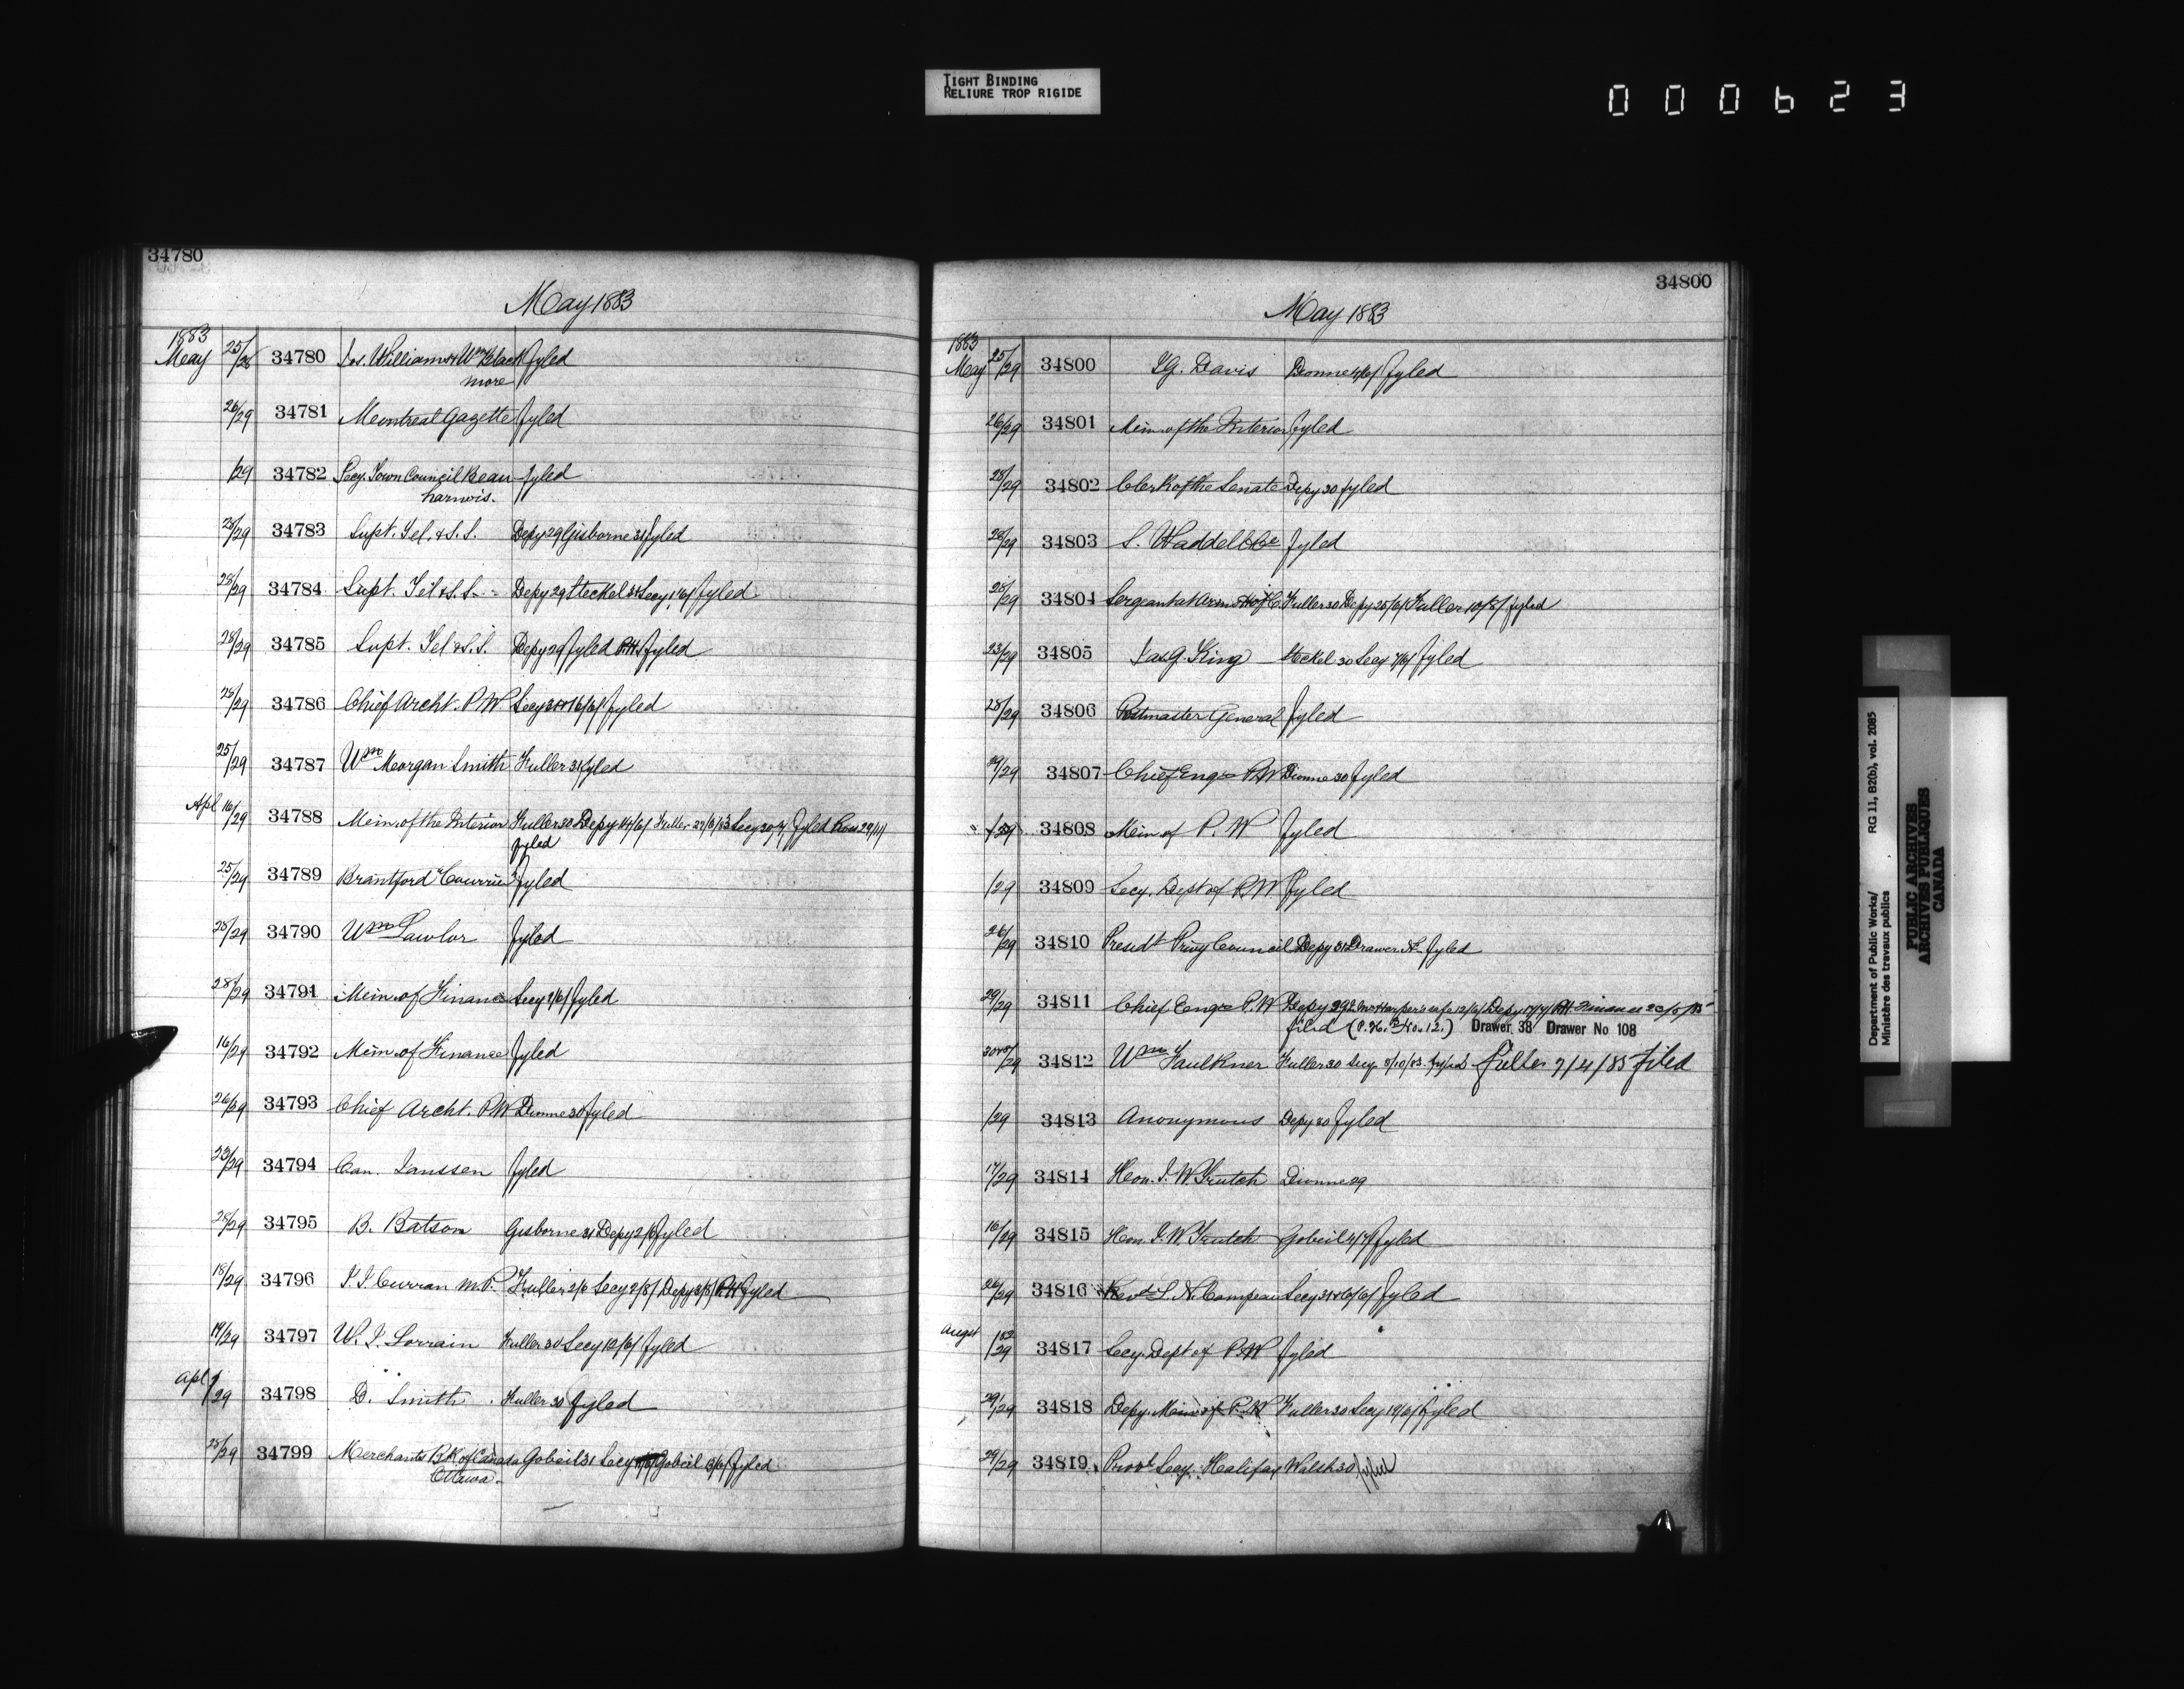 TIGHT BINDING
RELIURE TROP RIGIDE
000623
34780
May 1883
1883
May 25/26 34780 Jos. Williams & Wm Black fyled
more
26/29 34781 Montreal Gazette fyled
/29 34782 Secy. Town Council Beau fyled
harnois.
28/29 34783 Supt. Tel. & S. S. Depy 29 Gisborne 31 fyled
28/29 34784 Supt. Tel & S. S. Depy 29 Steckel 31 Secy 1/6/ fyled
28/29 34785 Supt. Tel & S. S. Depy 29 fyled P.H. fyled
28/29 34786 Chief Archt. P. W Secy 31 fyled
25/29 34787 Wm Morgan Smith Fuller 31 fyled
Apl 16/29 34788 Min. of the Interior Fuller 30 Depy 14/6/ Fuller Secy fyled
fyled
25/29 34789 Brantford Courrier fyled
28/29 34790 Wm Lawlor fyled
28/29 34791 Min. of Finance Secy 2/6/ fyled
16/29 34792 Min. of Finance fyled
26/29 34793 Chief Archt. P.W Dionne 30 fyled
23/29 34794 Can. Janssen fyled
28/29 34795 B. Batson Gisborne 31 Depy 2/6 fyled
18/29 34796 J. J. Curran M.P. Fuller 2/6 Secy 2/8/ Depy 3/8/ P.H fyled
19/29 34797 W. J. Lorrain Fuller 30 Secy 12/6/ fyled
Apl /29 34798 D. Smith Fuller 30 fyled
28/29 34799 Merchants BK of Canada Gobeil 31 Secy Gobeil fyled
Ottawa
34800
May 1883
1883
May 25/29 34800 J G. Davis Dionne fyled
26/29 34801 Min. of the Interior fyled
28/29 34802 Clerk of the Senate Depy 30 fyled
28/29 34803 S. Waddell fyled
28/29 34804 Sergeant at Arms H of C. Fuller 30 Depy 25/6/ Fuller 10/8/ fyled
23/29 34805 Jas. G. King Steckel 30 Secy 7/6/ fyled
28/29 34806 Postmaster General fyled
29/29 34807 Chief Engr P.W Dionne 30 fyled
34808 Min of P. W fyled
/29 34809 Secy. Dept of P.W fyled
26/29 34810 Presidt Privy Council Depy 31 Drawer fyled
29/29 34811 Chief Engr P.W Depy 29 Depy P.H. Finance
filed (P. H. No. 12.) Drawer 38 Drawer No 108
/29 34812 Wm Faulkner Fuller 30 Secy 8/10/83. fyled Fuller 7/4/85 Filed
/29 34813 Anonymous Depy 30 fyled
17/29 34814 Hon. J. W. Trutch Dionne 29
16/29 34815 Hon. J. W. Trutch Gobeil 4/7/ fyled
26/29 34816 Revd L. N. Campeau Secy 31 fyled
Augst /29 34817 Secy. Dept of P.W fyled
29/29 34818 Depy. Min of P. W Fuller 30 Secy 19/6/ fyled
29/29 34819 Provl Secy. Halifax Walsh 30 fyled
Department of Public Works/ RG 11, B2(b), vol. 2085
Ministère des travaux publics
PUBLIC ARCHIVES
ARCHIVES PUBLIQUES
CANADA